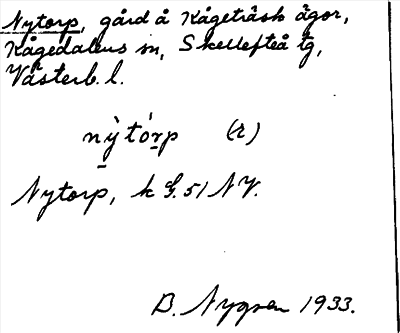 Nytorp, gård å Kågeträsk ägor,
Kågedalens sn, Skellefteå tg,
Västerb. l.
nỳtórp (r)
Nytorp, k G. 51 NV.
B. Nygren 1933.